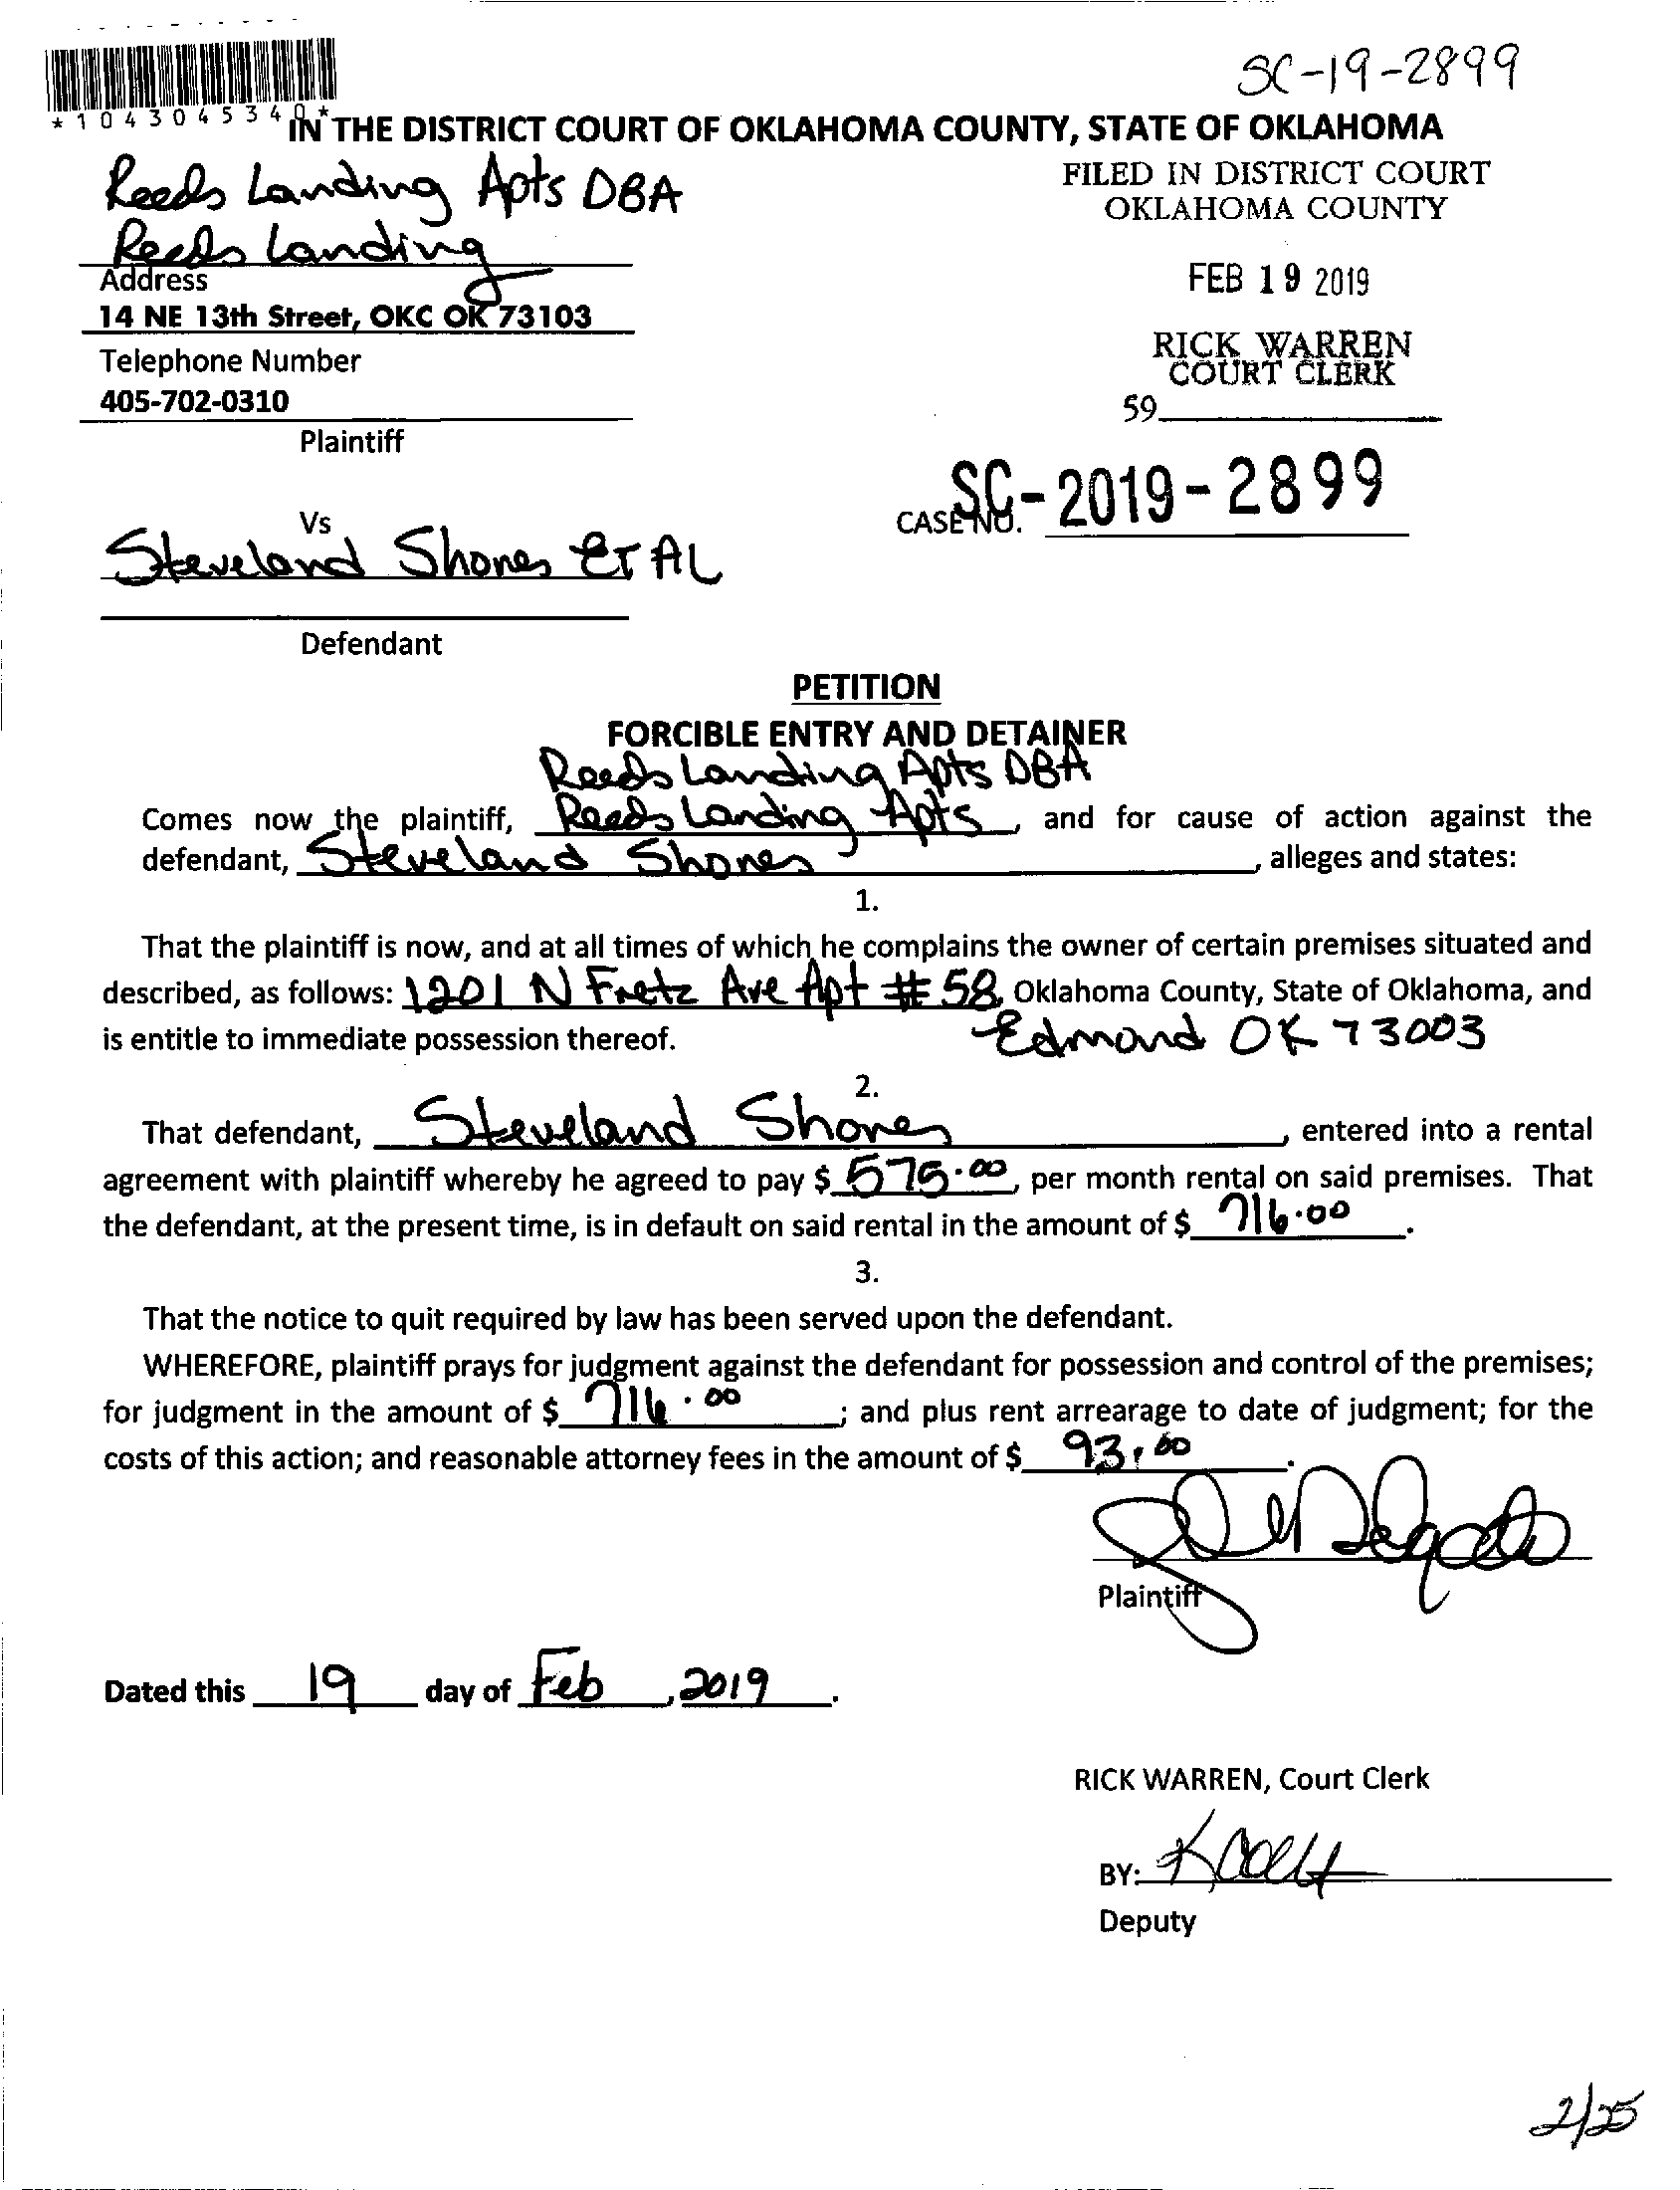 SC-19-2899
*1043045340*
IN THE DISTRICT COURT OF OKLAHOMA COUNTY, STATE OF OKLAHOMA
Reeds Landing Apts DBA
Reeds Landing
Address
14 NE 13th Street, OKC OK 73103
Telephone Number
405-702-0310
Plaintiff
FILED IN DISTRICT COURT
OKLAHOMA COUNTY
FEB 19 2019
RICK WARREN
COURT CLERK
59
CASE NO. SC-2019-2899
Vs
Steveland Shores ET AL
Defendant
PETITION
FORCIBLE ENTRY AND DETAINER
Reeds Landing Apts DBA
Comes now the plaintiff, Reeds Landing Apts, and for cause of action against the
defendant, Steveland Shores, alleges and states:
1.
That the plaintiff is now, and at all times of which he complains the owner of certain premises situated and
described, as follows: 1201 N Fretz Ave Apt #58, Oklahoma County, State of Oklahoma, and
is entitle to immediate possession thereof. Edmond OK 73003
2.
That defendant, Steveland Shores, entered into a rental
agreement with plaintiff whereby he agreed to pay $ 575.00, per month rental on said premises. That
the defendant, at the present time, is in default on said rental in the amount of $ 716.00.
3.
That the notice to quit required by law has been served upon the defendant.
WHEREFORE, plaintiff prays for judgment against the defendant for possession and control of the premises;
for judgment in the amount of $ 716.00; and plus rent arrearage to date of judgment; for the
costs of this action; and reasonable attorney fees in the amount of $ 93.00.
Plaintiff
Dated this 19 day of Feb, 2019.
RICK WARREN, Court Clerk
BY:
Deputy
2/25